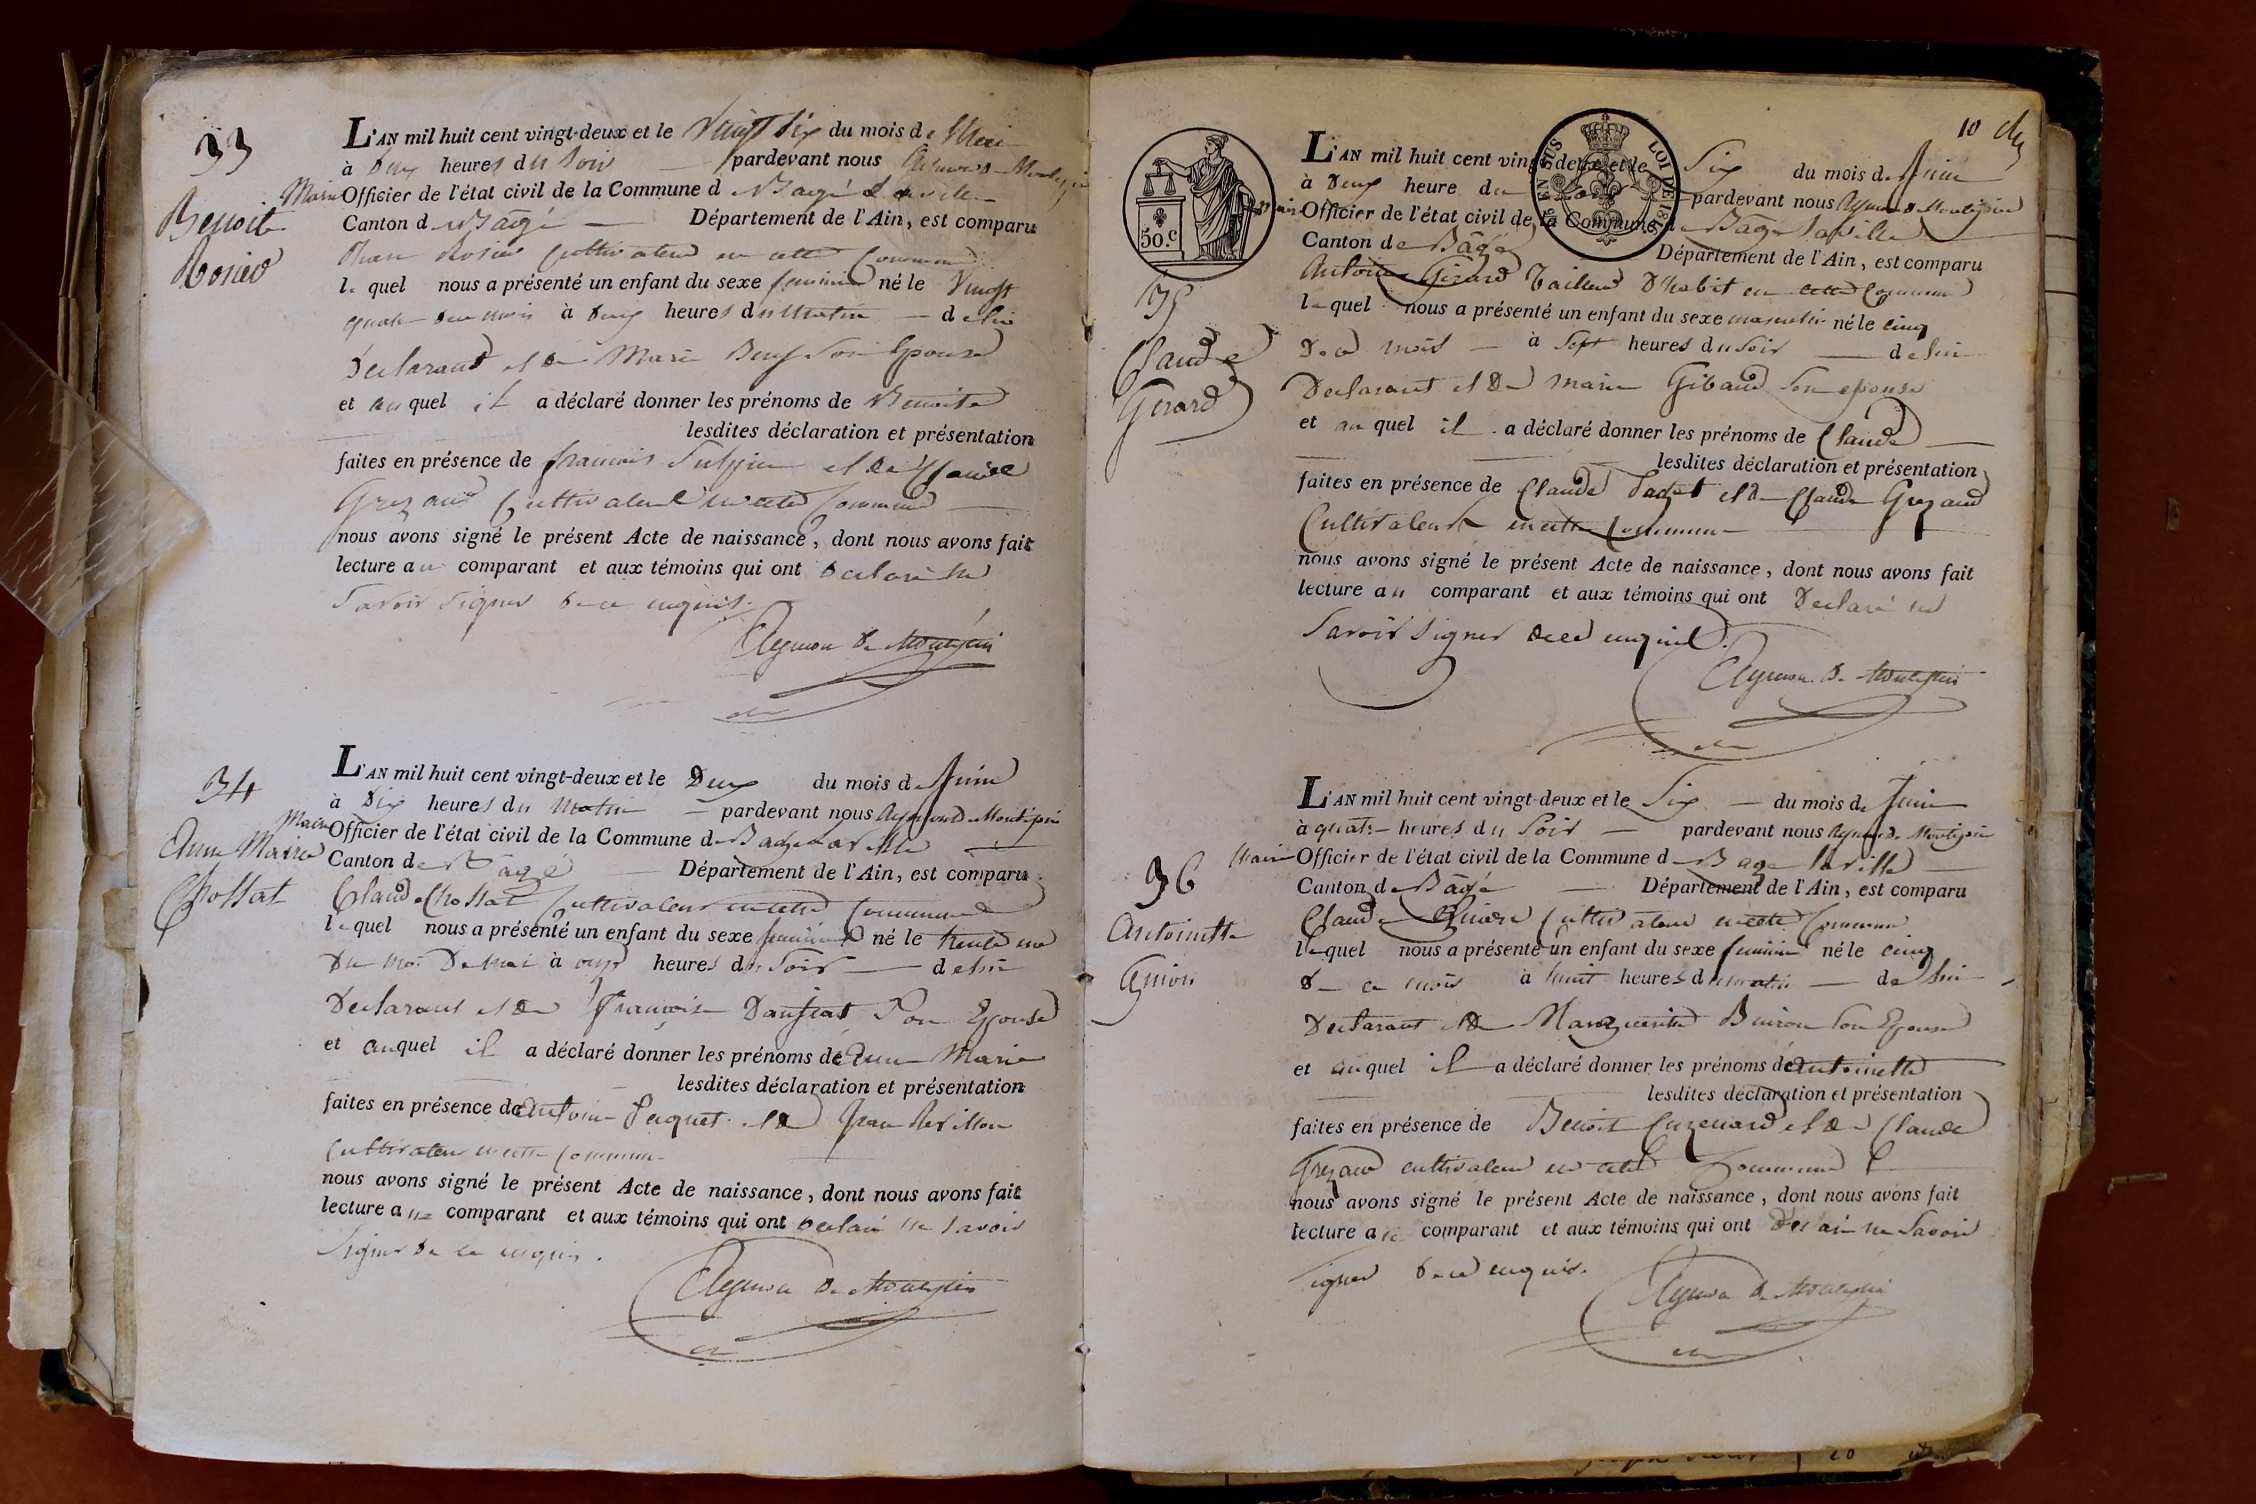 33
Benoite
Rosier
L'AN mil huit cent vingt-deux et le vingt six du mois de Mai
à Deux heures du Soir pardevant nous Aymon De Montépin
Maire Officier de l'état civil de la Commune de Bagé La ville
Canton de Bagé Département de l'Ain, est comparu
Rosier Cultivateur en cette Commune
lequel nous a présenté un enfant du sexe feminin né le Vingt
quatre de ce mois à Deux heures du Matin de lui
Déclarant et de Marie Son Epouse
et auquel il a déclaré donner les prénoms de Benoite
lesdites déclaration et présentation
faites en présence de francois Sulpice et de Claude
Grezaud Cultivateurs en cette Commune
nous avons signé le présent Acte de naissance, dont nous avons fait
lecture au comparant et aux témoins qui ont Declaré ne
Savoir Signer de ce enquis.
Aymon De Montépin
34
Anne Marie
Chossat
L'AN mil huit cent vingt-deux et le Deux du mois de Juin
à Dix heures du Matin pardevant nous Aymon De Montépin
Maire Officier de l'état civil de la Commune de Bagé La ville
Canton de Bâgé Département de l'Ain, est comparu
Claude Chossat Cultivateur en cette Commune
lequel nous a présenté un enfant du sexe feminin né le trente un
Du mois De mai à onze heures du Soir de lui
Declarant et de françoise Danjeat Son Epouse
et auquel il a déclaré donner les prénoms de Anne Marie
lesdites déclaration et présentation
faites en présence de Antoine Paquet et de Jean Revillon
Cultivateur en cette Commune
nous avons signé le présent Acte de naissance, dont nous avons fait
lecture au comparant et aux témoins qui ont declaré ne Savoir
Signer de ce enquis.
Aymon De Montépin
10
50.C
LOI DE 18
35
Claude
Gerard
L'AN mil huit cent vingt-deux et le Six du mois de Juin
à Deux heure du Soir pardevant nous Aymon De Montépin
Maire Officier de l'état civil de la Commune de Bâgé La ville
Canton de Bâgé Département de l'Ain, est comparu
Antoine Gerard Tailleur D'habit en cette Commune
lequel nous a présenté un enfant du sexe masculin né le cinq
De ce mois à Sept heures du Soir de lui
Declarant et De marie Gibaud Son epouse
et auquel il a déclaré donner les prénoms de Claude
lesdites déclaration et présentation
faites en présence de Claude Padet et de Claude Grezaud
Cultivateurs en cette Commune
nous avons signé le présent Acte de naissance, dont nous avons fait
lecture au comparant et aux témoins qui ont Declaré ne
Savoir Signer de ce enquis.
Aymon De Montépin
36
Antoinette
Guion
L'AN mil huit cent vingt-deux et le Six du mois de Juin
à quatre heures du Soir pardevant nous Aymon De Montépin
Maire Officier de l'état civil de la Commune de Bagé La ville
Canton de Bâgé Département de l'Ain, est comparu
Claude Guion Cultivateur en cette Commune
lequel nous a présenté un enfant du sexe feminin né le cinq
De ce mois à huit heures du matin de lui
Declarant et De Marguerite Buiron Son Epouse
et auquel il a déclaré donner les prénoms de Antoinette
lesdites déclaration et présentation
faites en présence de Benoit Cuzenard et De Claude
Grezaud cultivateur en cette Commune
nous avons signé le présent Acte de naissance, dont nous avons fait
lecture au comparant et aux témoins qui ont Declaré ne Savoir
Signer De ce enquis.
Aymon De Montépin